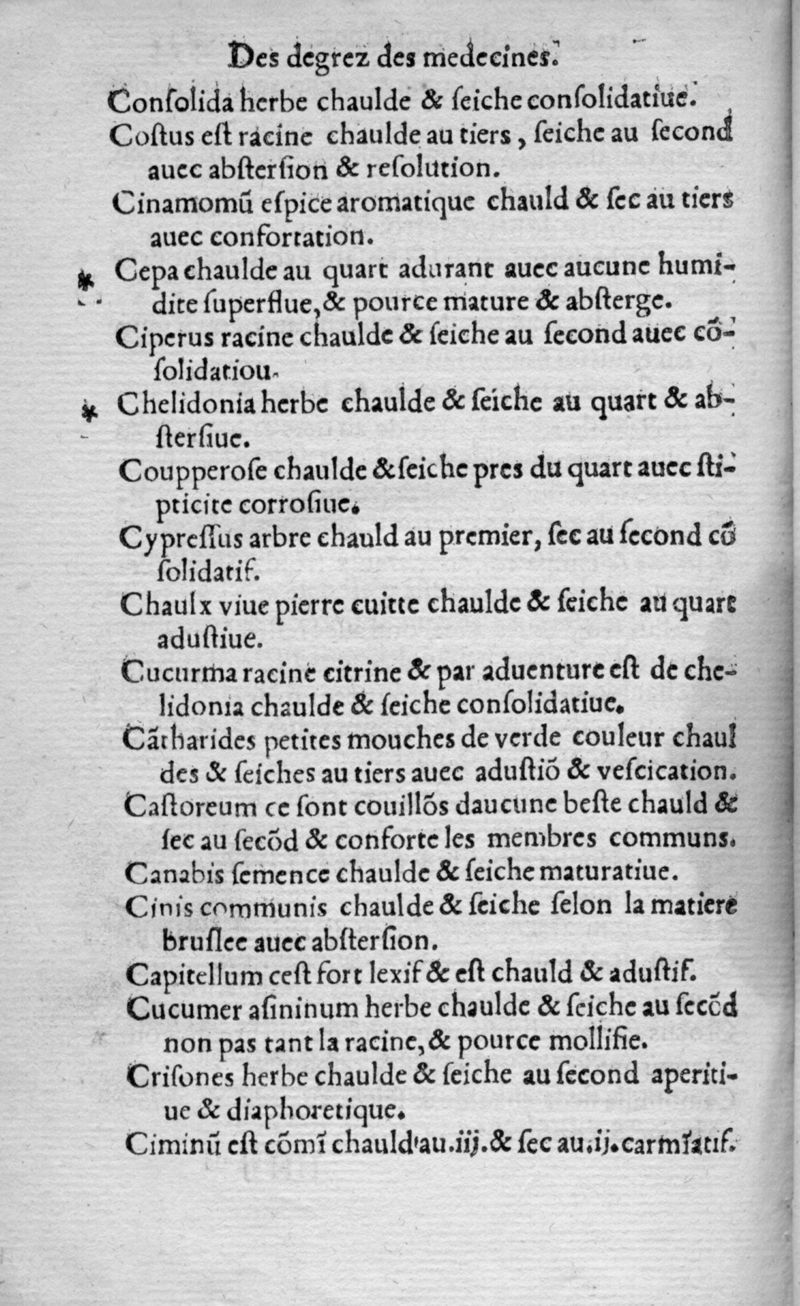 Des degrez des medecines.
Conſolida herbe chaulde & ſeiche conſolidatiue.
Coſtus eſt racine chaulde au tiers, ſeiche au ſecond
auec abſterſion & reſolution.
Cinamomũ eſpice aromatique chauld & ſec au tiers
auec confortation.
* Cepa chaulde au quart adurant auec aucune humi-
dite ſuperflue, & pource mature & abſterge.
Ciperus racine chaulde & ſeiche au ſecond auec cõ-
ſolidatiou.
* Chelidonia herbe chaulde & ſeiche au quart & ab-
ſterſiue.
Coupperoſe chaulde & ſeiche pres du quart auec ſti-
pticite corroſiue.
Cypreſſus arbre chauld au premier, ſec au ſecond cõ
ſolidatif.
Chaulx viue pierre cuitte chaulde & ſeiche au quart
aduſtiue.
Cucurma racine citrine & par aduenture eſt de che-
lidonia chaulde & ſeiche conſolidatiue.
Cãtharides petites mouches de verde couleur chaul
des & ſeiches au tiers auec aduſtiõ & veſcication.
Caſtoreum ce ſont couillõs daucune beſte chauld &
ſec au ſecõd & conforte les membres communs.
Canabis ſemence chaulde & ſeiche maturatiue.
Cinis communis chaulde & ſeiche ſelon la matiere
bruſlee auec abſterſion.
Capitellum ceſt fort lexif & eſt chauld & aduſtif.
Cucumer aſininum herbe chaulde & ſeiche au ſecõd
non pas tant la racine, & pource mollifie.
Criſones herbe chaulde & ſeiche au ſecond aperiti-
ue & diaphoretique.
Ciminũ eſt cõmĩ chauld au .iij. & ſec au .ij. carmĩatif.